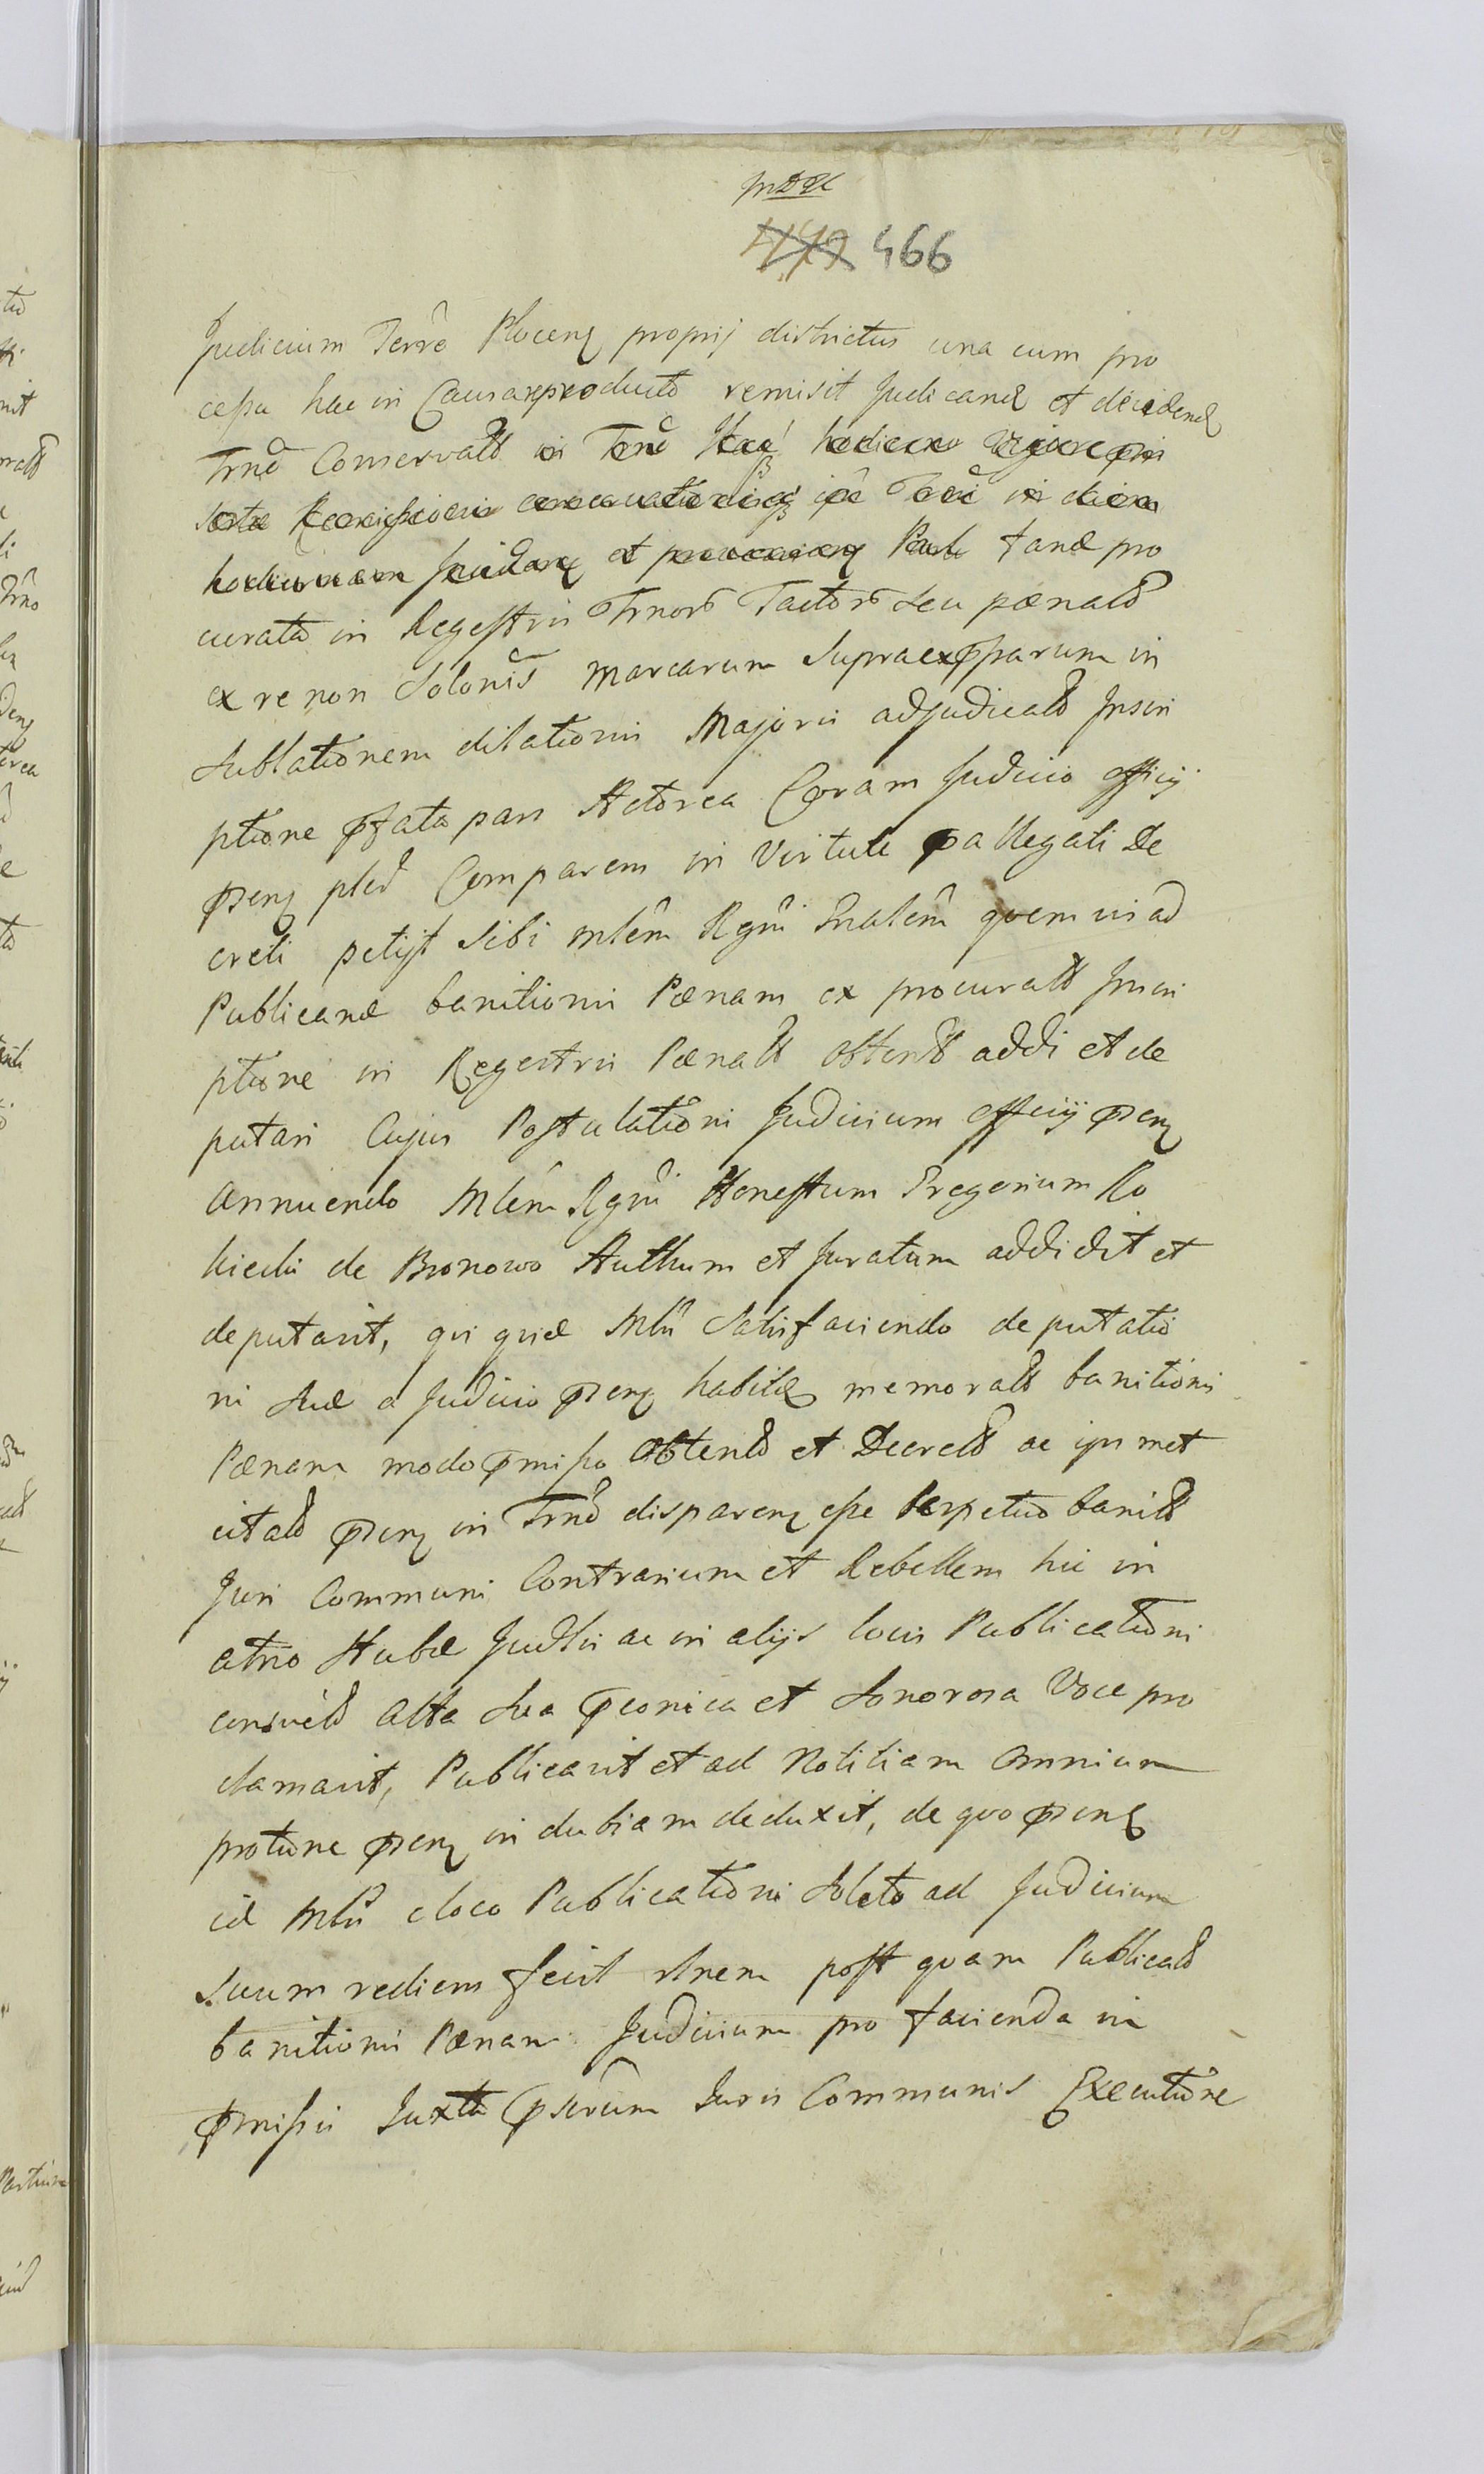 466
Judicium Terrē Plocen proprij districtus una cum pro
cessu hac in Causa reproducto remisit Judicand et decidend
Trnō Conservatō in
hodiernam et fand pro
curata in Regestris Trnorō Tactorō seu pœnalō
ex re non Solonīs Marcarum Supraexpssarum in
Sublationem dilationis Majoris adjudicatō Inscri
ptione pfata pars Actorea Coram Judicio officij
psen pltō Comparens in Virtute pallegati De
creti petijt sibi mlēm Rgnī Gnalēm quemvis ad
Publicand banitionis Pœnam ex procuratō Inscri
ptione in Regestris Pœnalō obtentō addi et de
putari Cujus Postulationi Judicium officij psen
annuendo Mlēm Rgnī Honestum Gregorium Ro
kicki de Bronowo Authum et Juratum addidit et
deputavit, qui quid Mlīs satisfaciendo deputatio
ni suæ a Judicio psen habitæ memoratō banitionis
Pœnam modo pmisso obtentō et Decretō ac ipsmet
citatō psen in Trnō disparen esse perpetuo banitō
Juri Communi Contrarium et Rebellem hic in
atrio Stubæ Judlis ac in alijs locis Publicationi
consuetō alta sua pconica et sonorosa Voce pro
clamavit, Publicavit et ad Notitiam omnium
protunc psen indubiam deduxit, de quo psen
id Mlīs eloco Publicationi solito ad Judicium
suum rediens fecit rlnem post quam Publicatō
banitionis Pœnam Judicium pro facienda in
pmissis Juxta pscrūm Juris Communis Executione